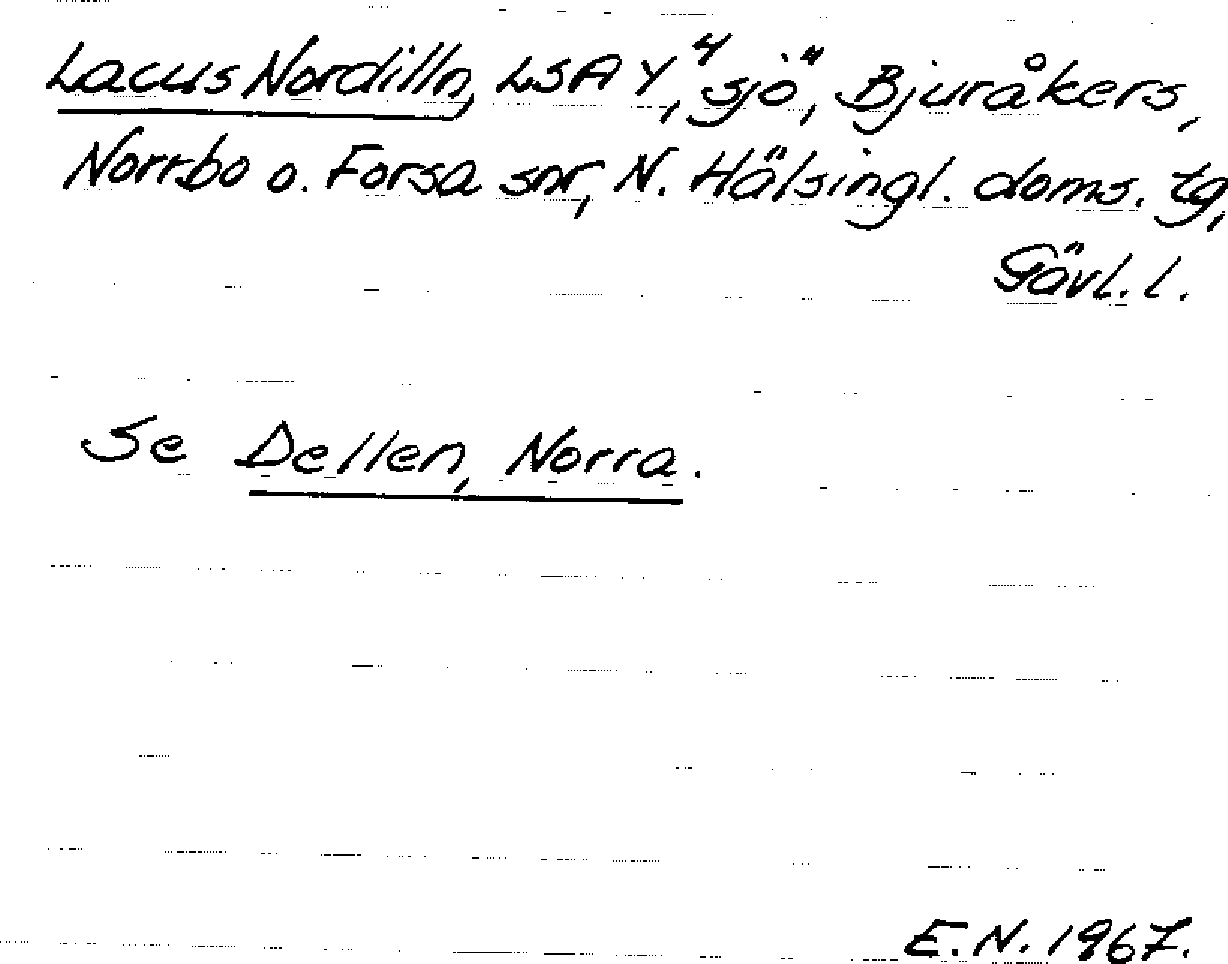 Lacus Nordilln, LSA Y, "sjö", Bjuråkers,
Norrbo o. Forsa snr, N. Hälsingl. doms. tg,
Gävl. l.
Se Dellen, Norra.
E.N. 1967.